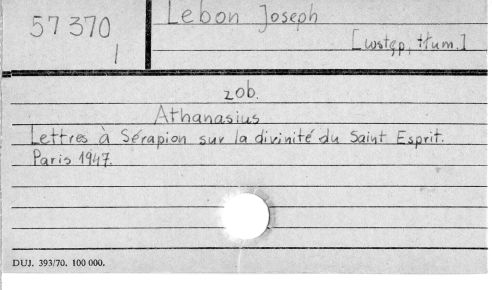 57 370
I
Lebon Joseph
[wstęp, tłum.]
zob.
Athanasius
Lettres à Sérapion sur la divinité du Saint Esprit.
Paris 1947.
DUJ. 393/70. 100 000.